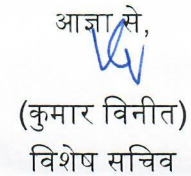 आज्ञा से,
(कुमार विनीत)
विशेष सचिव